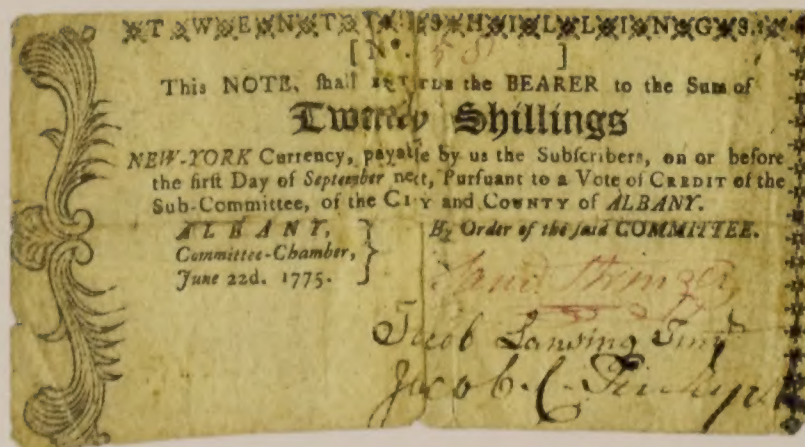 TWENTY SHILLINGS.
[ No. 58 ]
This NOTE, ſhall ENTITLE the BEARER to the Sum of
Twenty Shillings
NEW-YORK Currency, payable by us the Subſcribers, on or before
the firſt Day of September next, Purſuant to a Vote of CREDIT of the
Sub-Committee, of the CITY and COUNTY of ALBANY.
ALBANY,
Committee-Chamber,
June 22d. 1775.
By Order of the ſaid COMMITTEE.
Saml Stringer
Jacob Lansing Junr
Jacob C.